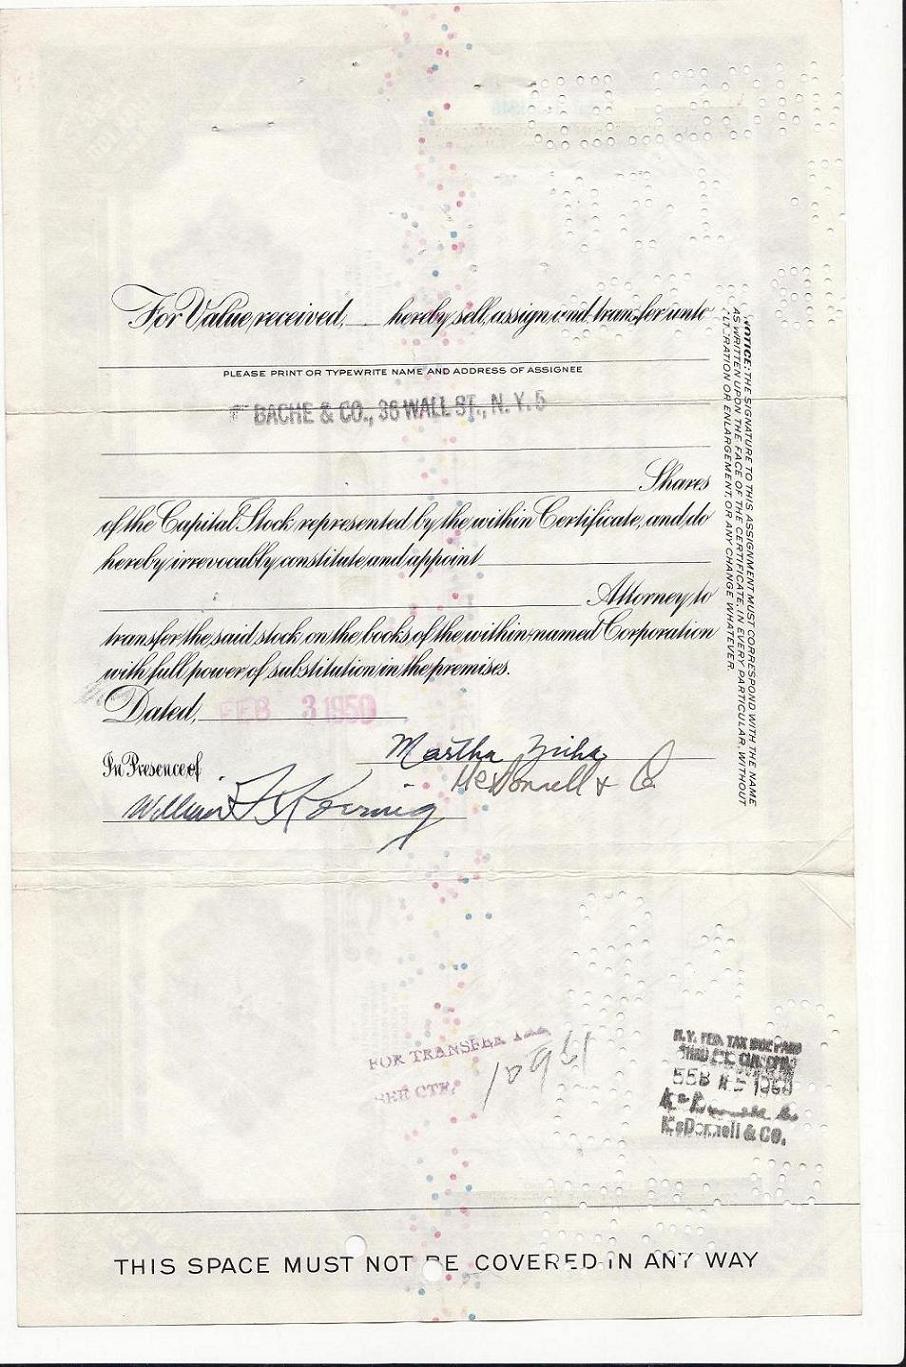 For Value received, ___ hereby sell, assign and transfer unto
PLEASE PRINT OR TYPEWRITE NAME AND ADDRESS OF ASSIGNEE
BACHE & CO., 36 WALL ST., N. Y. 5
Shares
of the Capital Stock represented by the within Certificate, and do
hereby irrevocably constitute and appoint
Attorney to
transfer the said stock on the books of the within-named Corporation
with full power of substitution in the premises.
Dated, FEB 3 1950
Martha
In Presence of
McDonnell & Co
William F Koenig
NOTICE: THE SIGNATURE TO THIS ASSIGNMENT MUST CORRESPOND WITH THE NAME
AS WRITTEN UPON THE FACE OF THE CERTIFICATE, IN EVERY PARTICULAR, WITHOUT
ALTERATION OR ENLARGEMENT, OR ANY CHANGE WHATEVER.
FOR TRANSFER
SEE CTF.
N.Y. FED. TAX
McDonnell & CO.
THIS SPACE MUST NOT BE COVERED IN ANY WAY